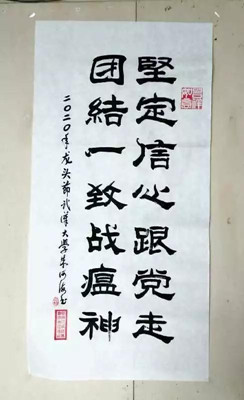 堅定信心跟党走
团結一致战瘟神
二〇二〇年龙头节武汉大学朱